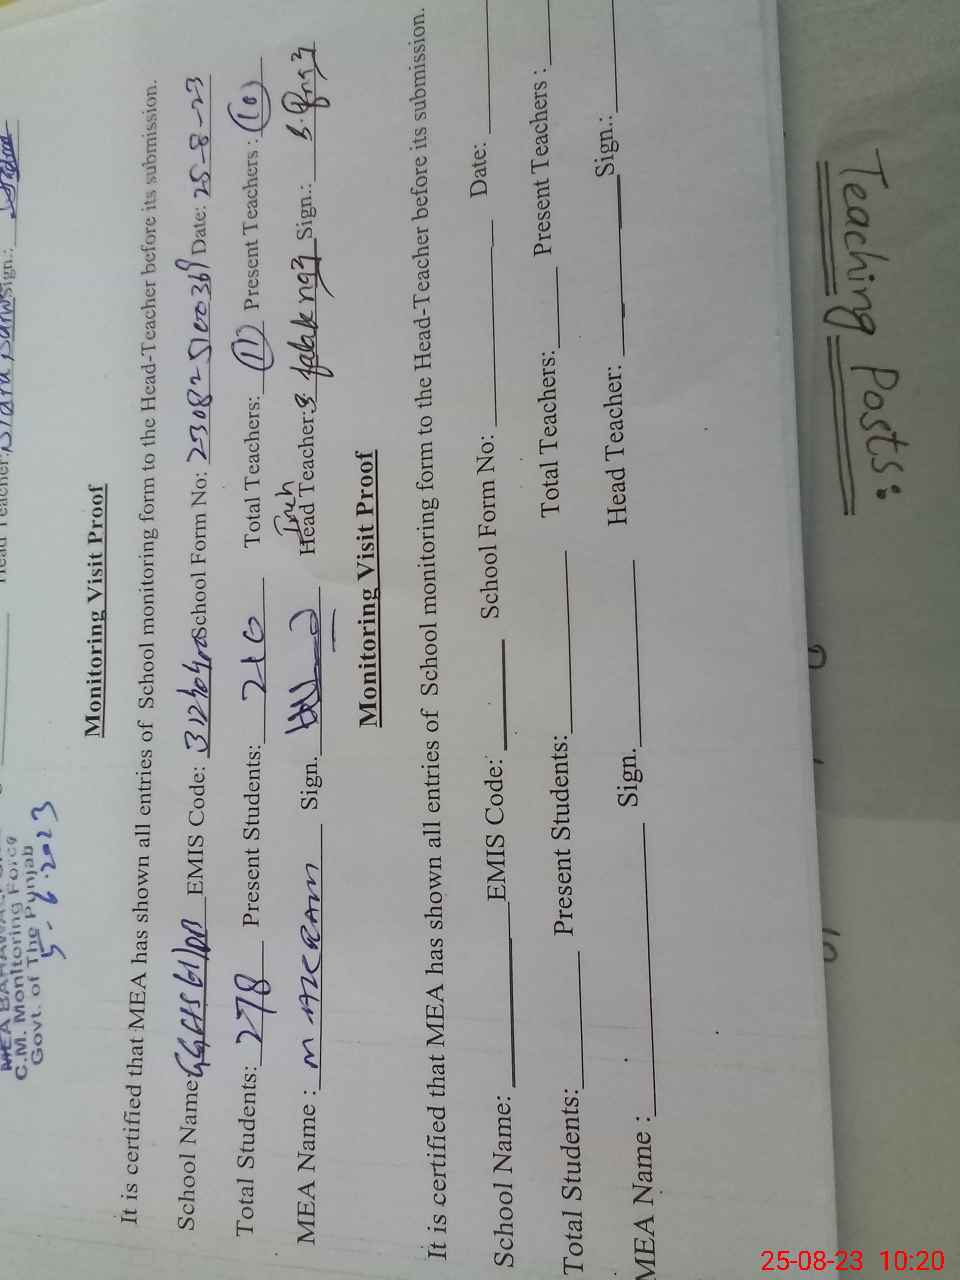 Head Teacher: Sign.:
MEA
C.M. Monitoring Force
Govt. of The Punjab
5-6-2023
Monitoring Visit Proof
It is certified that MEA has shown all entries of School monitoring form to the Head-Teacher before its submission.
School Name: GGHS 61/DB EMIS Code: School Form No: Date: 25-8-23
Total Students: 278 Present Students: 216 Total Teachers: 11 Present Teachers: 10
MEA Name : M AKRAM Sign. Inch Head Teacher: falak naz Sign.:
Monitoring Visit Proof
It is certified that MEA has shown all entries of School monitoring form to the Head-Teacher before its submission.
School Name: EMIS Code: School Form No: Date:
Total Students: Present Students: Total Teachers: Present Teachers :
MEA Name : Sign. Head Teacher: Sign.:
Teaching Posts:
25-08-23 10:20